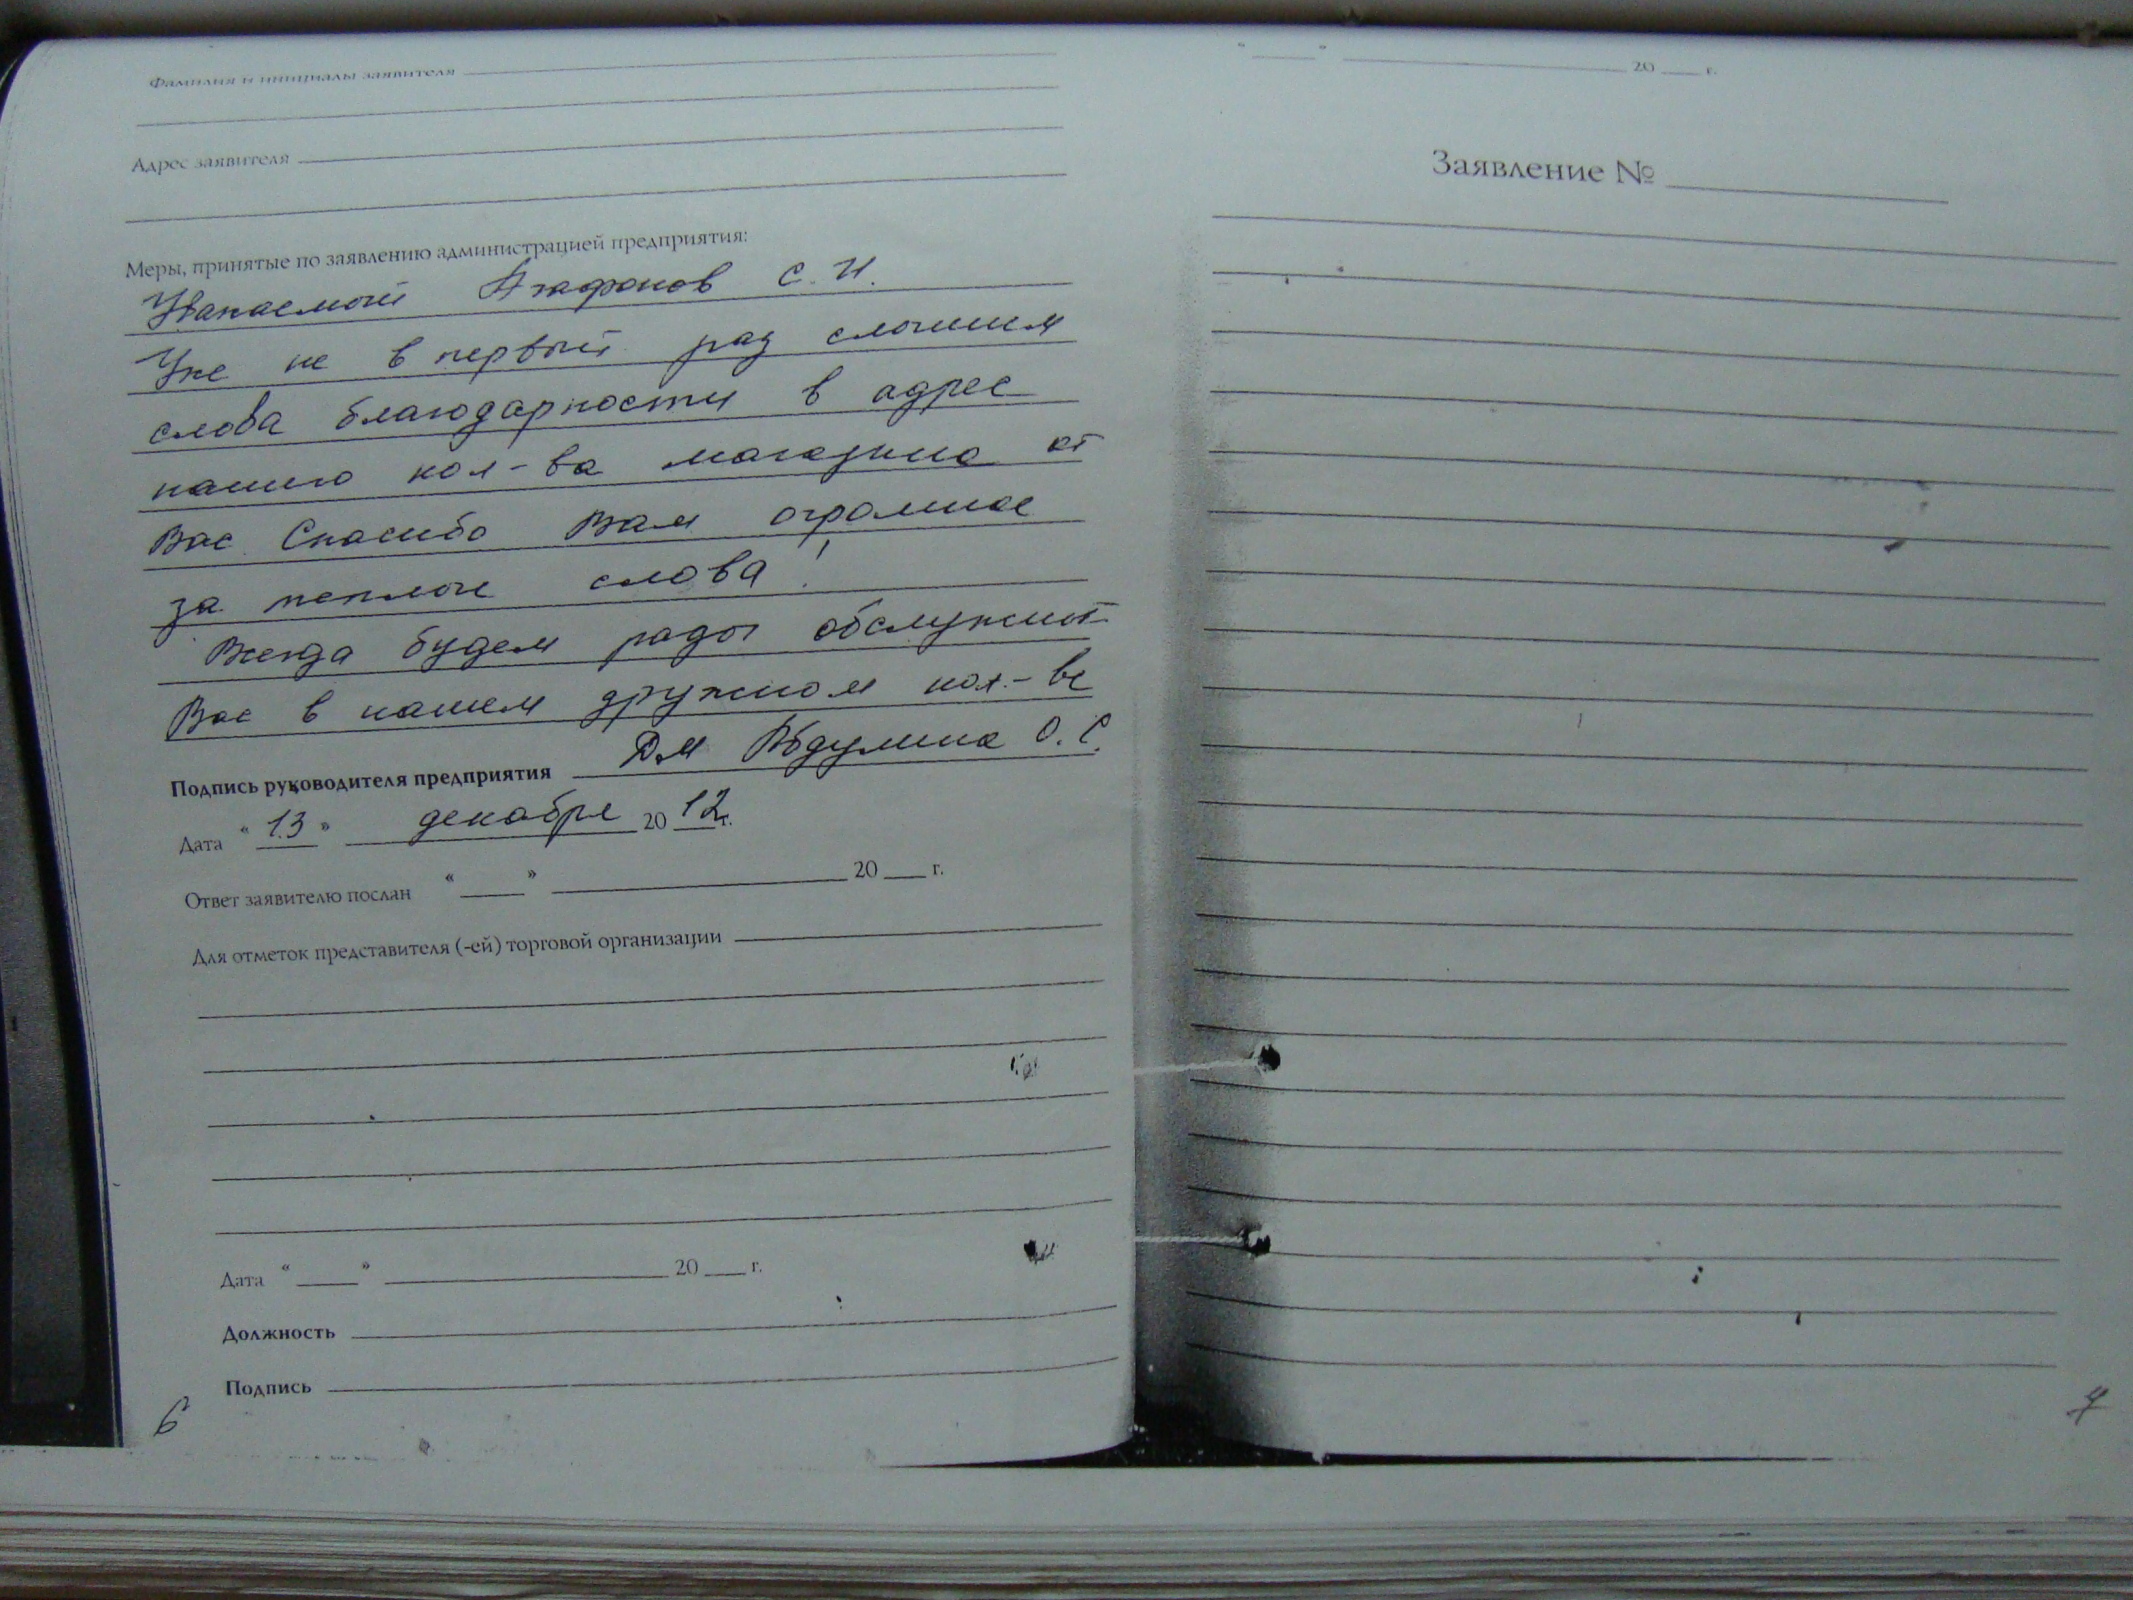 Фамилия и инициалы заявителя
Адрес заявителя
Меры, принятые по заявлению администрацией предприятия:
Уважаемый Агафонов С. И.
Уже не в первый раз слышим
слова благодарности в адрес
нашего кол-ва магазина от
Вас. Спасибо Вам огромное
за теплые слова!
Всегда будем рады обслужить
Вас в нашем дружном кол-ве
Подпись руководителя предприятия ДМ Абдулина О. С.
Дата « 13 » декабря 20 12 г.
Ответ заявителю послан « » 20 г.
Для отметок представителя (-ей) торговой организации
Дата « » 20 г.
Должность
Подпись
6
" " 20 г.
Заявление №
7